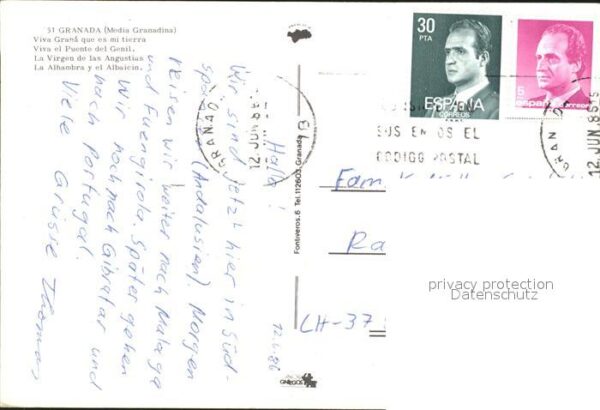 51 GRANADA (Media Granadina)
Viva Graná que es mi tierra
Viva el Puente del Genil,
La Virgen de las Angustias
La Alhambra y el Albaicín.
12.6.86
Hallo!
Wir sind jetzt hier in Süd-
spanien (Andalusien). Morgen
reisen wir weiter nach Malaga
und Fuengirola. Später gehen
wir noch nach Gibraltar und
nach Portugal.
Viele Grüsse Thomas
Fontiveros, 6 Tel. 112603. Granada
30
PTA
ESPAÑA
CORREOS
5
españa correos
GRANADA
12.JUN.86
EN
SUS ENVIOS EL
CODIGO POSTAL
GRAN
12.JUN.86
Fam.
Ra
CH-37
privacy protection
Datenschutz